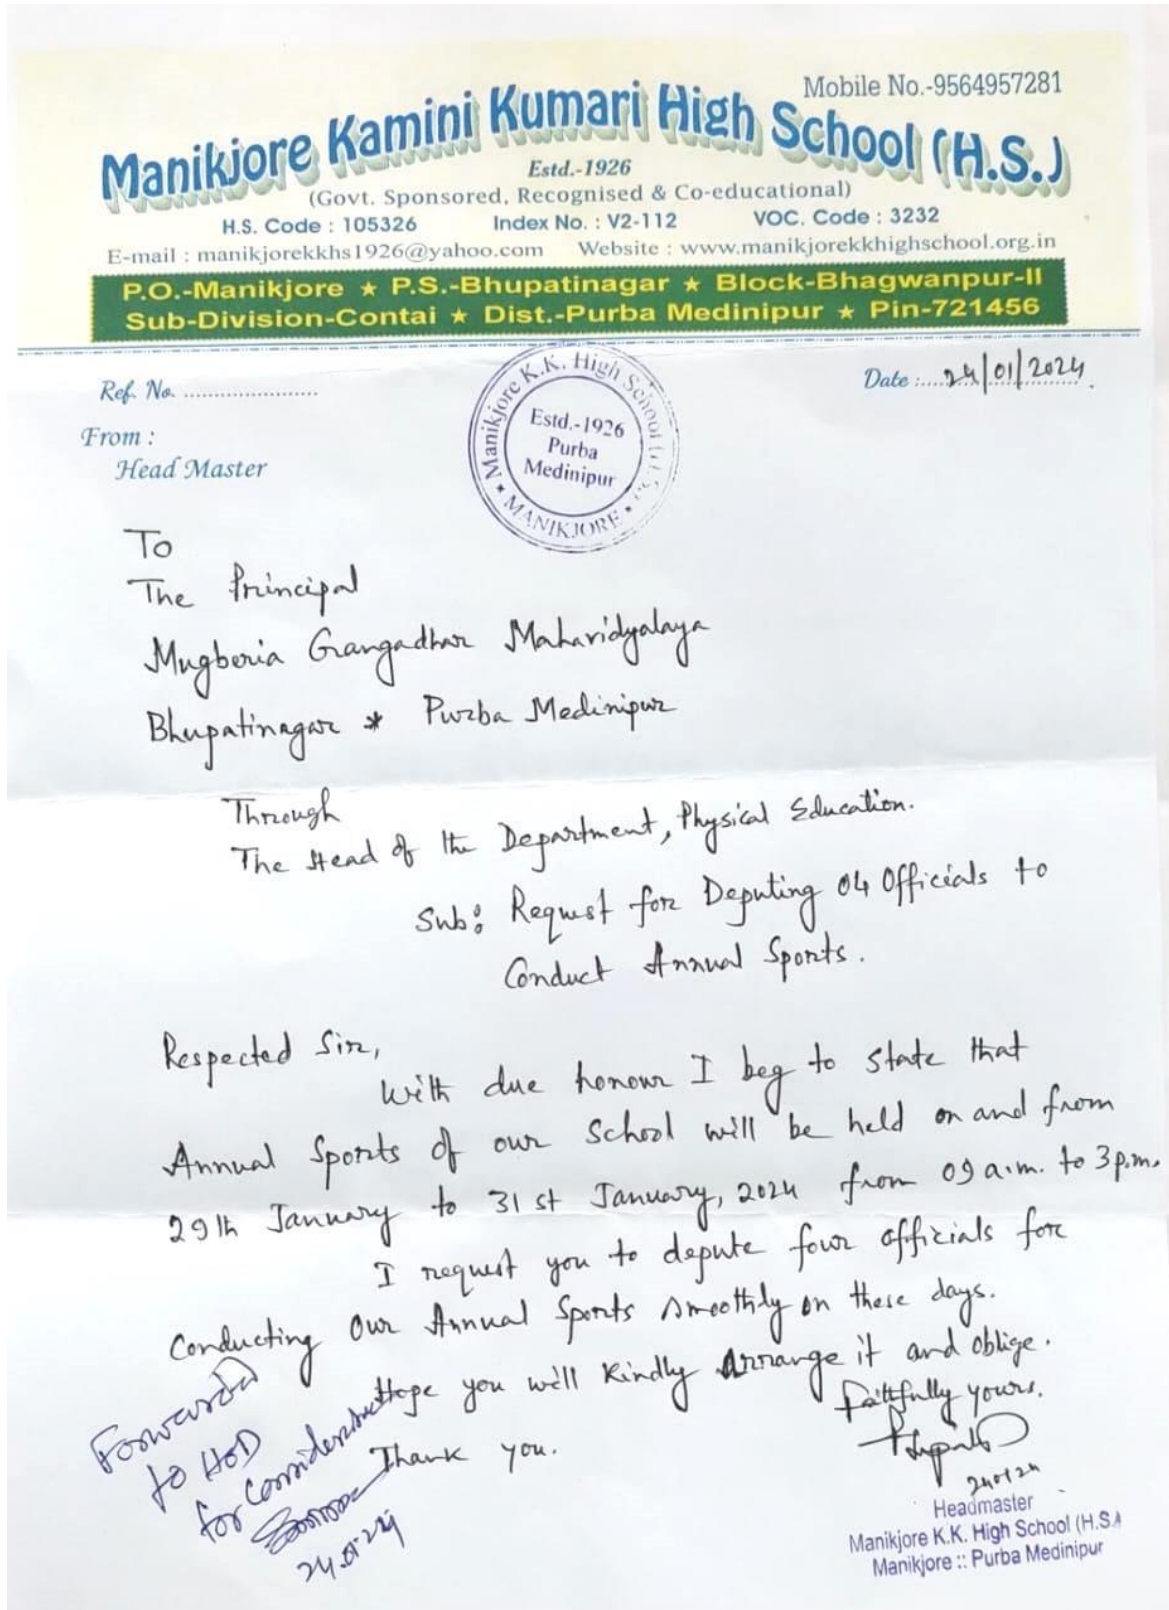 Mobile No.-9564957281
Manikjore Kamini Kumari High School (H.S.)
Estd.-1926
(Govt. Sponsored, Recognised & Co-educational)
H.S. Code : 105326 Index No. : V2-112 VOC. Code : 3232
E-mail : manikjorekkhs1926@yahoo.com Website : www.manikjorekkhighschool.org.in
P.O.-Manikjore ★ P.S.-Bhupatinagar ★ Block-Bhagwanpur-II
Sub-Division-Contai ★ Dist.-Purba Medinipur ★ Pin-721456
Ref. No. ......................
Date :....24/01/2024
From :
Head Master
Manikjore K.K. High School (H.S.)
Estd.-1926
Purba
Medinipur
★ MANIKJORE ★
To
The Principal
Mugberia Gangadhar Mahavidyalaya
Bhupatinagar * Purba Medinipur
Through
The Head of the Department, Physical Education.
Sub: Request for Deputing 04 Officials to
Conduct Annual Sports.
Respected Sir,
With due honour I beg to state that
Annual Sports of our School will be held on and from
29th January to 31st January, 2024 from 09 a.m. to 3 p.m.
I request you to depute four officials for
Conducting Our Annual Sports smoothly on these days.
Hope you will Kindly Arrange it and Oblige.
Thank you.
Faithfully yours.
24/01/24
Headmaster
Manikjore K.K. High School (H.S.)
Manikjore :: Purba Medinipur
Forwarded
to HOD
for Consideration
24.01.24